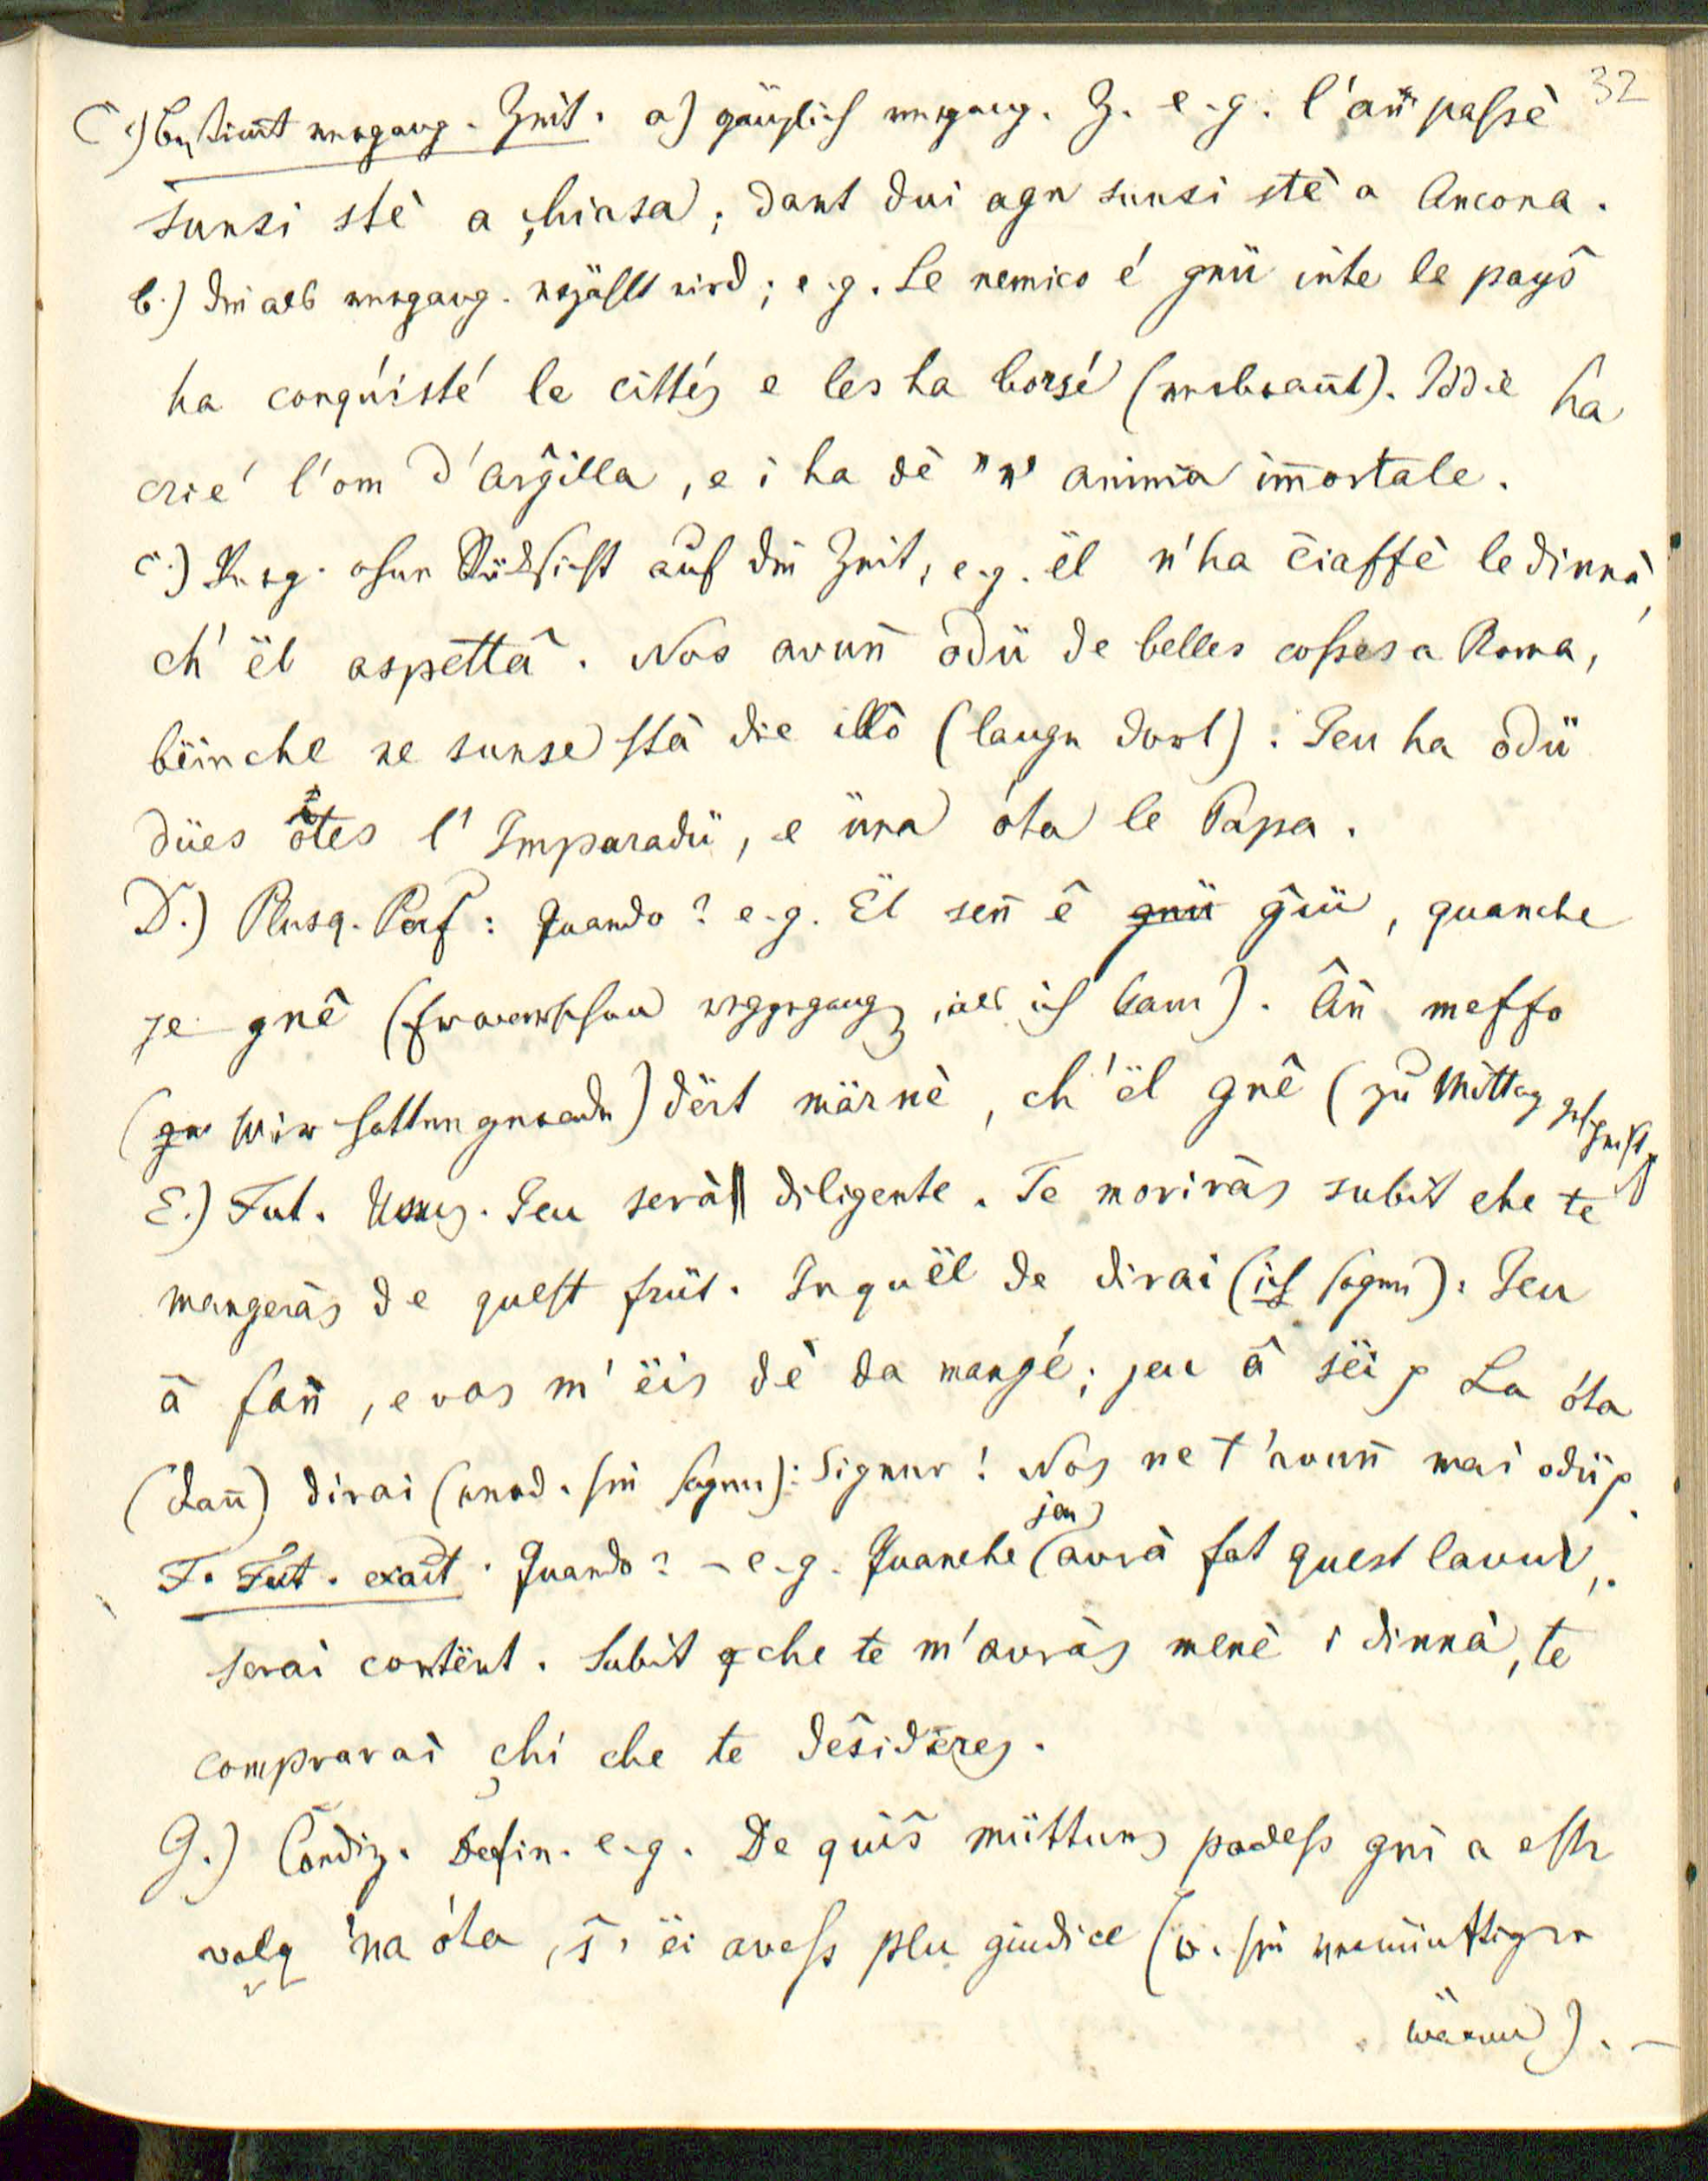 32
C.) Bestim̄t vergang. Zeit. a) gänzlich vergang. Z. e.g. l'an̄ passè
sunsi stè a çhiasa; dant dui agn sunsi stè a Ancona.
b.) die als vergang. erzählt wird; e.g. Le nemico é gnü inte le payŝ
ha conquisté le cittès e les ha borsé (verbran̄t). Iddie ha
crié l'om d'arĝilla, e i ha dè "n' anima im̄ortale.
c.) Verg. ohne Rücksicht auf die Zeit, e.g. ël n'ha ĉiaffè le dinnà,
ch' ël aspettâ. Nos avun̄ odü de belles cosses a Roma,
bëinche ne sunse stà die illò (lange dort). Jeu ha odü
dües ôtes l' Imparadù, e üna óta le Papa.
D.) Plusq. Perf: Quando? e.g. Ël sen̄ ê gnü ĝiü, quanche
je gnê (Er war schon weggegang, als ich kam). Ân̄ meffo
(ge Wir hatten gerade) dërt märnè, ch' ël gnê (zu Mittag gespeist
E.) Fut. Jeu serà diligente. Te moriràs subit che te
mangeràs de quest früt. In quël de dirai (ich sagen): Jeu
â fan̄, e vos m' ëis dè da mangé; jeu â sëi p La óta
(dan̄) dirai (werd. sie sagen): Signur! Nos ne t'avun̄ mai odü p.
F. Fut. exact. Quando? - e.g. Quanche jeu avrà fat quest lavur,
serai contënt. Subit q che te m'avràs menè i dinnà, te
comprarai çhi che te deŝidères.
G.) Condiz. Defin. e.g. De quiŝ müttuns podess gnì a estr
valq 'na óta, ŝ' ëi avess plu giudice (w. sie vernünftiger
wären). —